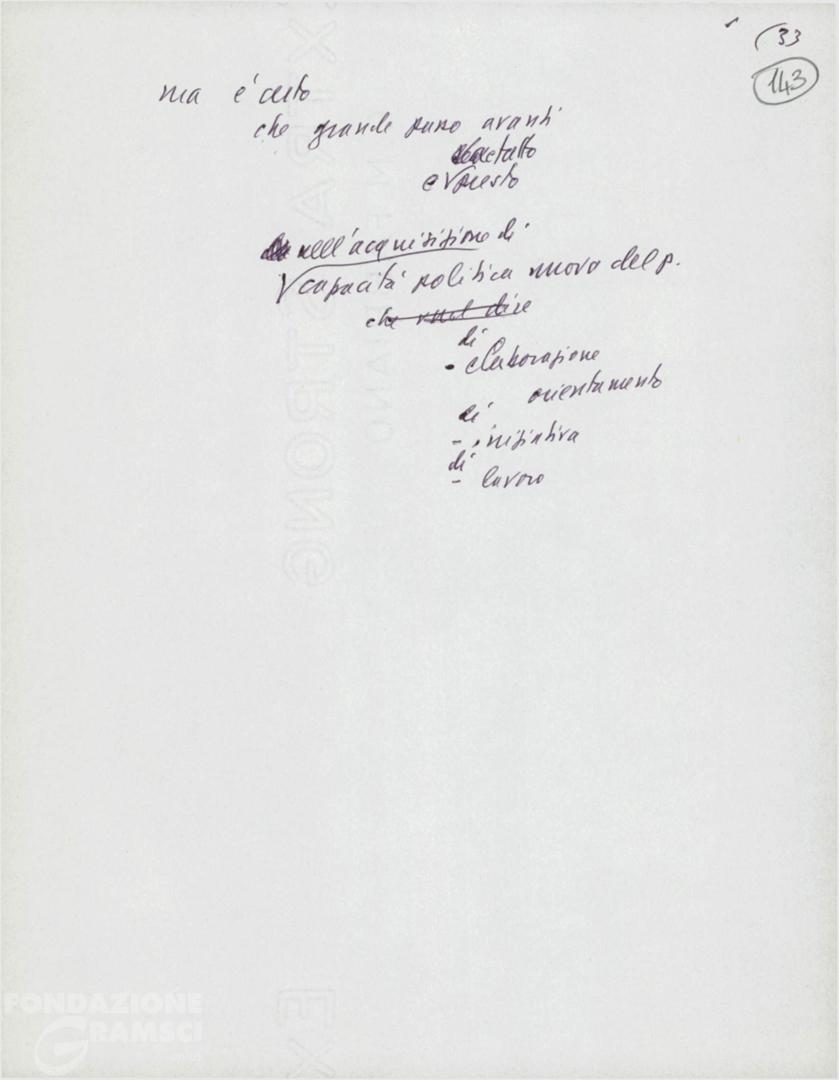 33
143
ma è certo
che grande passo avanti
e presto
nell'acquisizione di
capacità politica nuova del p.
che vuol dire
di
- elaborazione
orientamento
di
- iniziativa
di
- lavoro
EXTRA STRONG
FONDAZIONE
GRAMSCI